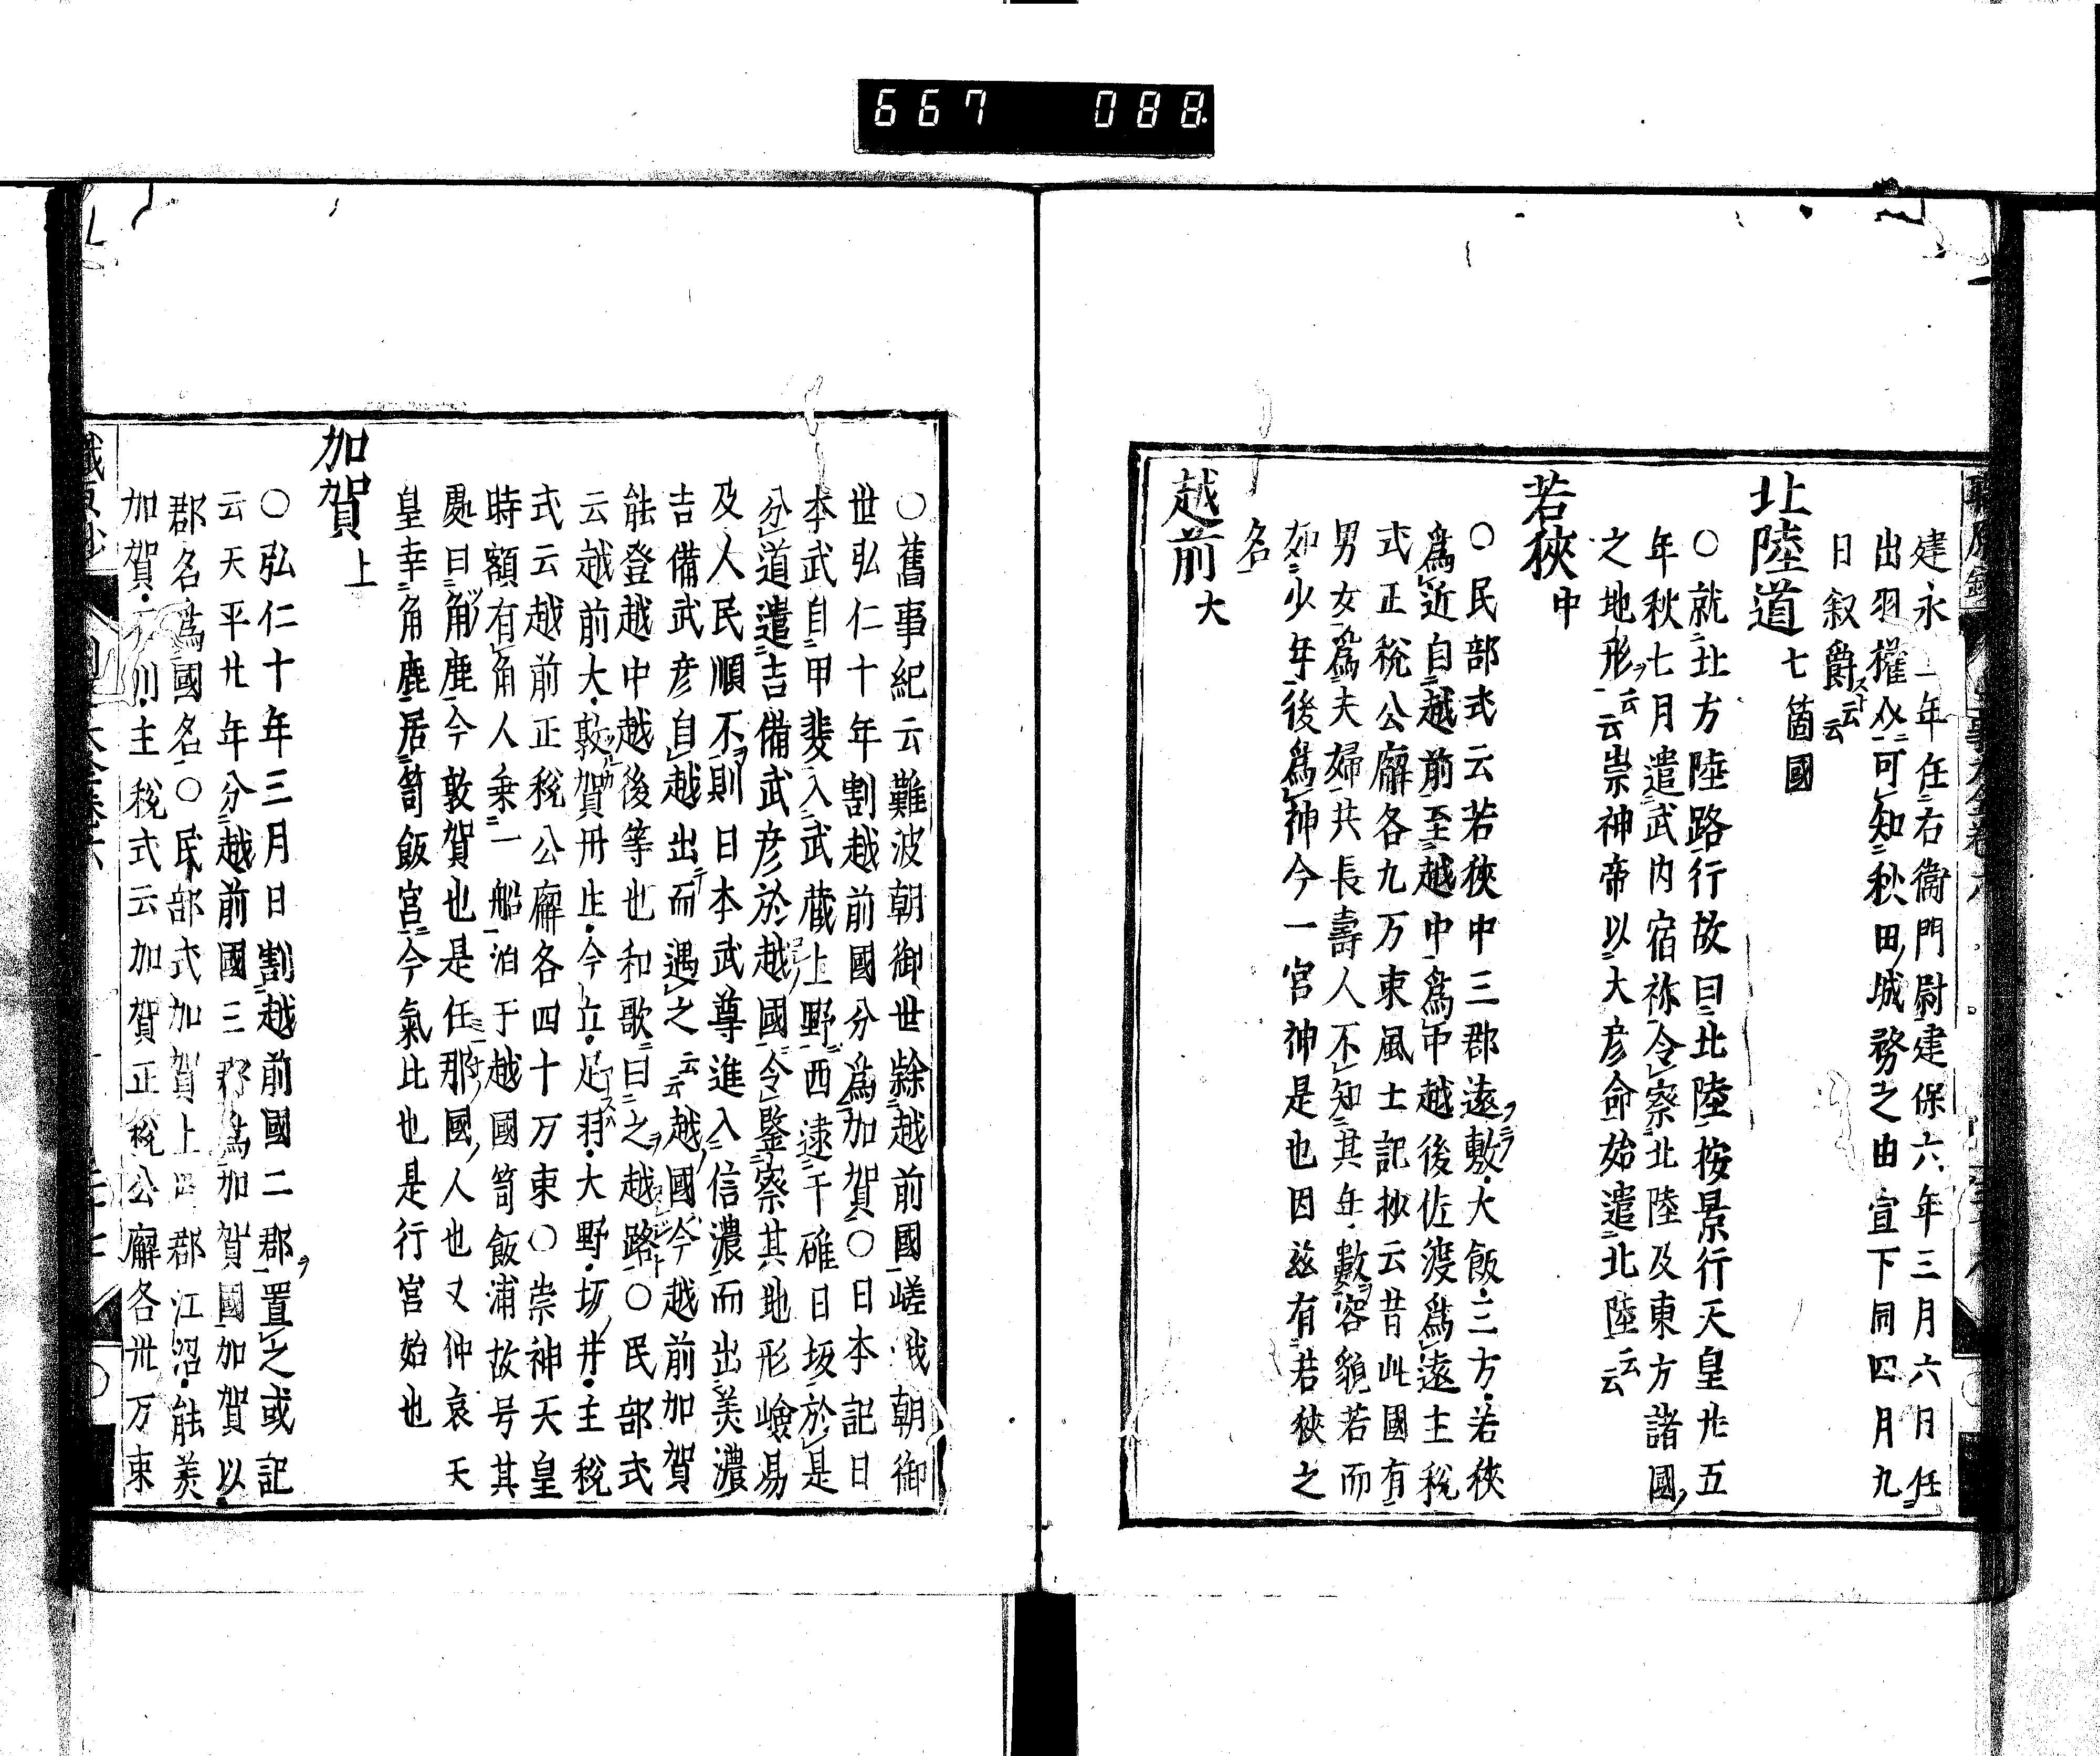 667 088
建永二年任右衞門尉建保六年三月六日任
出羽權介可知秋田城務之由宣下同四月九
日叙爵云云
北陸道七箇國
○就北方陸路行故曰北陸按景行天皇廿五
年秋七月遣武内宿祢令察北陸及東方諸國
之地形云云崇神帝以大彦命始遣北陸云云
若狹中
○民部式云若狹中三郡遠敷大飯三方若狹
爲近自越前至越中爲中越後佐渡爲遠主稅
式正稅公廨各九万束風土記抄云昔此國有
男女爲夫婦共長壽人不知其年數容貌若而
如少年後爲神今一宮神是也因茲有若狹之
名
越前大
○舊事紀云難波朝御世隸越前國嵯峨朝御
世弘仁十年割越前國分爲加賀○日本記日
本武自甲斐入武藏上野西逮于碓日坂於是
分道遣吉備武彦於越國令監察其地形嶮易
及人民順不則日本武尊進入信濃而出美濃
吉備武彦自越出而遇之云云越國今越前加賀
能登越中越後等也和歌曰之越路○民部式
云越前大敦賀丹生今立足羽大野坂井主稅
式云越前正稅公廨各四十万束○崇神天皇
時額有角人乗一船泊于越國笥飯浦故号其
處曰角鹿今敦賀也是任那國人也又仲哀天
皇幸角鹿居笥飯宮今氣比也是行宮始也
加賀上
○弘仁十年三月日割越前國二郡置之或記
云天平廿年分越前國三郡爲加賀國加賀以
郡名爲國名○民部式加賀上四郡江沼能美
加賀石川主稅式云加賀正稅公廨各卅万束